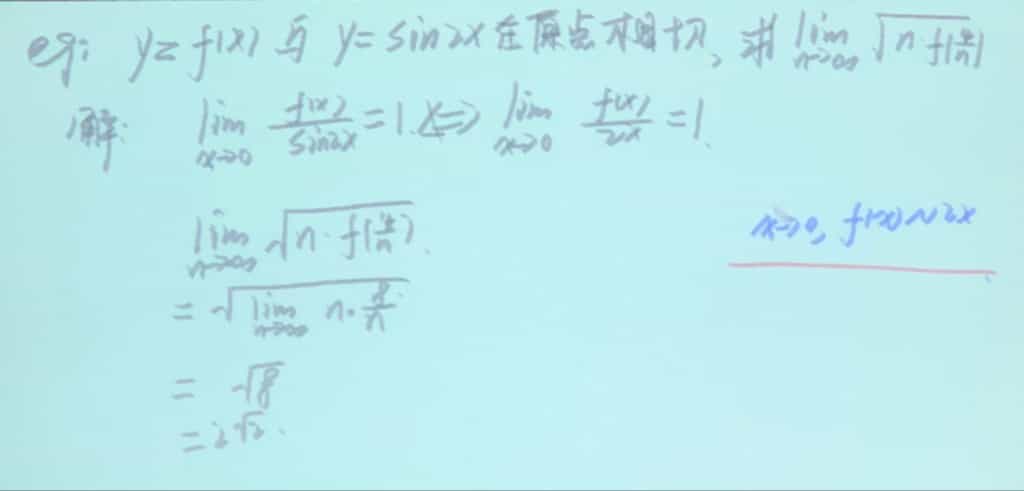 eg: y=f(x) 与 y=sin2x 在原点相切, 求 lim n→∞ √(n·f(4/n))
解: lim x→0 f(x)/sin2x = 1. <=> lim x→0 f(x)/2x = 1.
lim n→∞ √(n·f(4/n)).
x→0, f(x)~2x
= √(lim n→∞ n·8/n)
= √8
= 2√2.